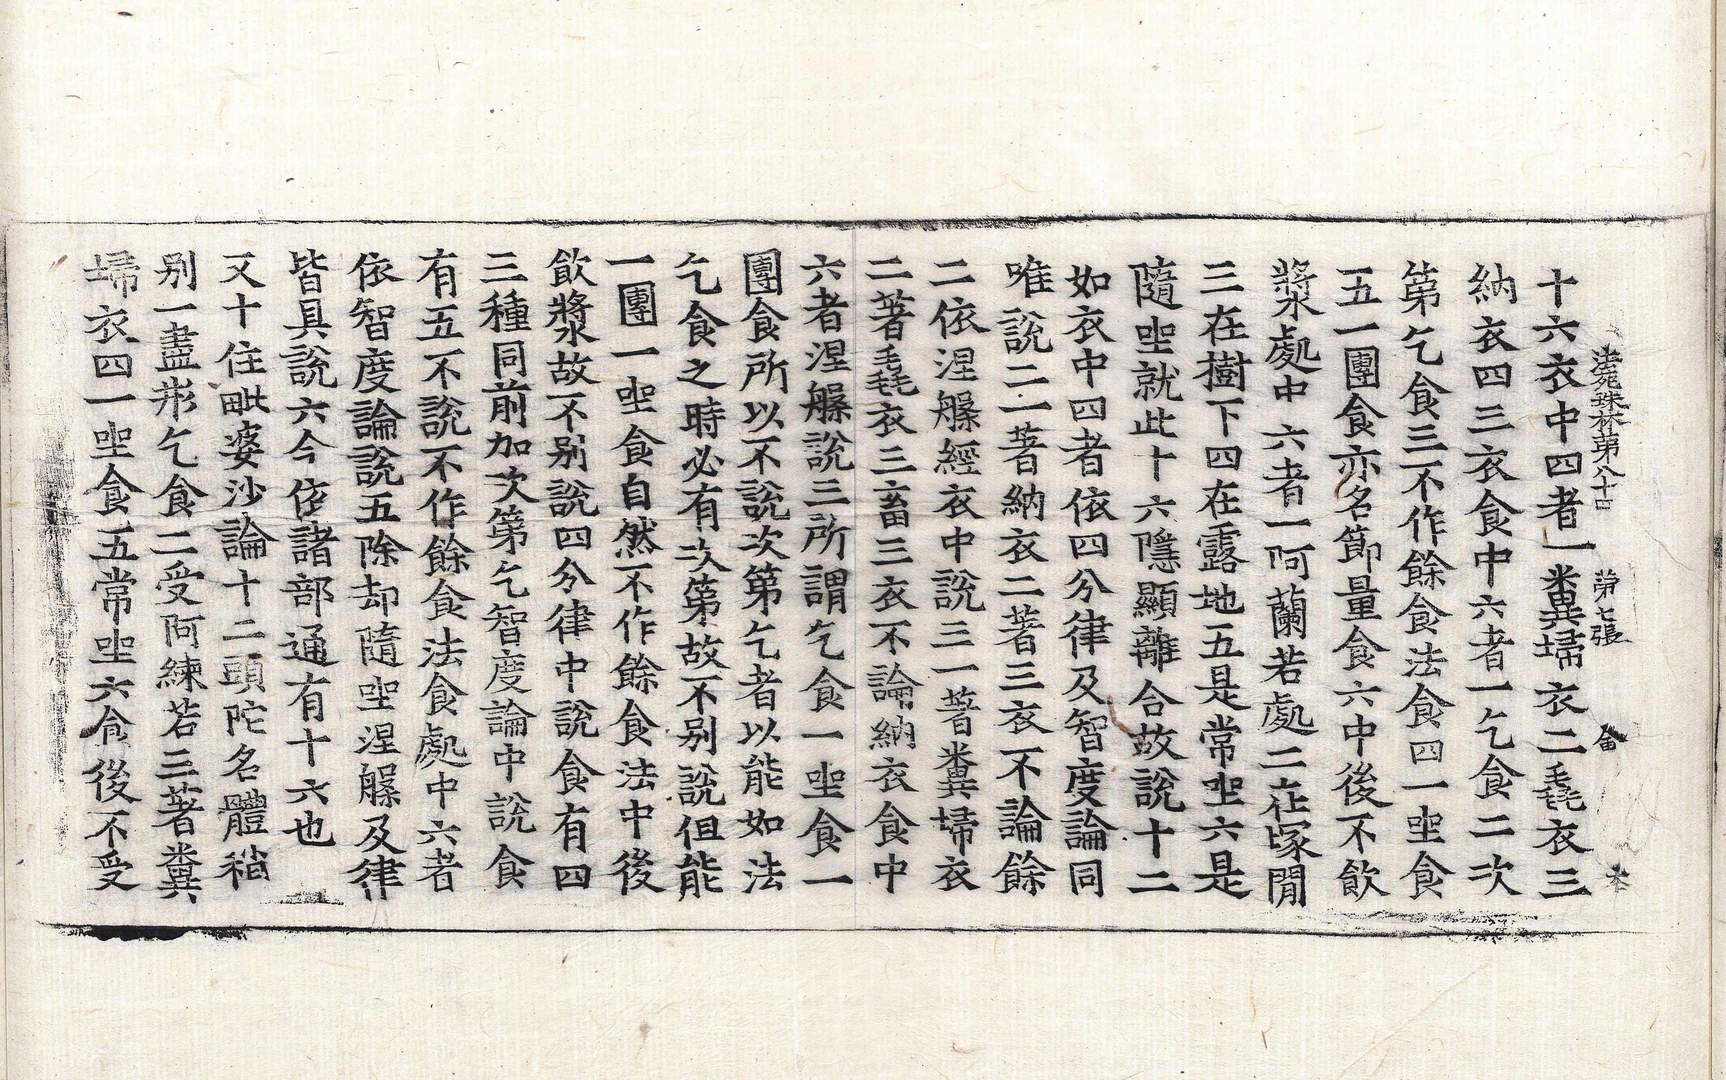 法苑珠林第八十四　第七張
十六衣中四者一糞掃衣二毳衣三
納衣四三衣食中六者一乞食二次
第乞食三不作餘食法食四一坐食
五一團食亦名節量食六中後不飲
漿處中六者一阿蘭若處二在塚閒
三在樹下四在露地五是常坐六是
隨坐就此十六隱顯離合故說十二
如衣中四者依四分律及智度論同
唯說二一著納衣二著三衣不論餘
二依涅槃經衣中說三一著糞掃衣
二著毳衣三畜三衣不論納衣食中
六者涅槃說三所謂乞食一坐食一
團食所以不說次第乞者以能如法
乞食之時必有次第故不別說但能
一團一坐食自然不作餘食法中後
飲漿故不別說四分律中說食有四
三種同前加次第乞智度論中說食
有五不說不作餘食法食處中六者
依智度論說五除却隨坐涅槃及律
皆具說六今依諸部通有十六也
又十住毗婆沙論十二頭陀名體稍
別一盡形乞食二受阿練若三著糞
掃衣四一坐食五常坐六食後不受